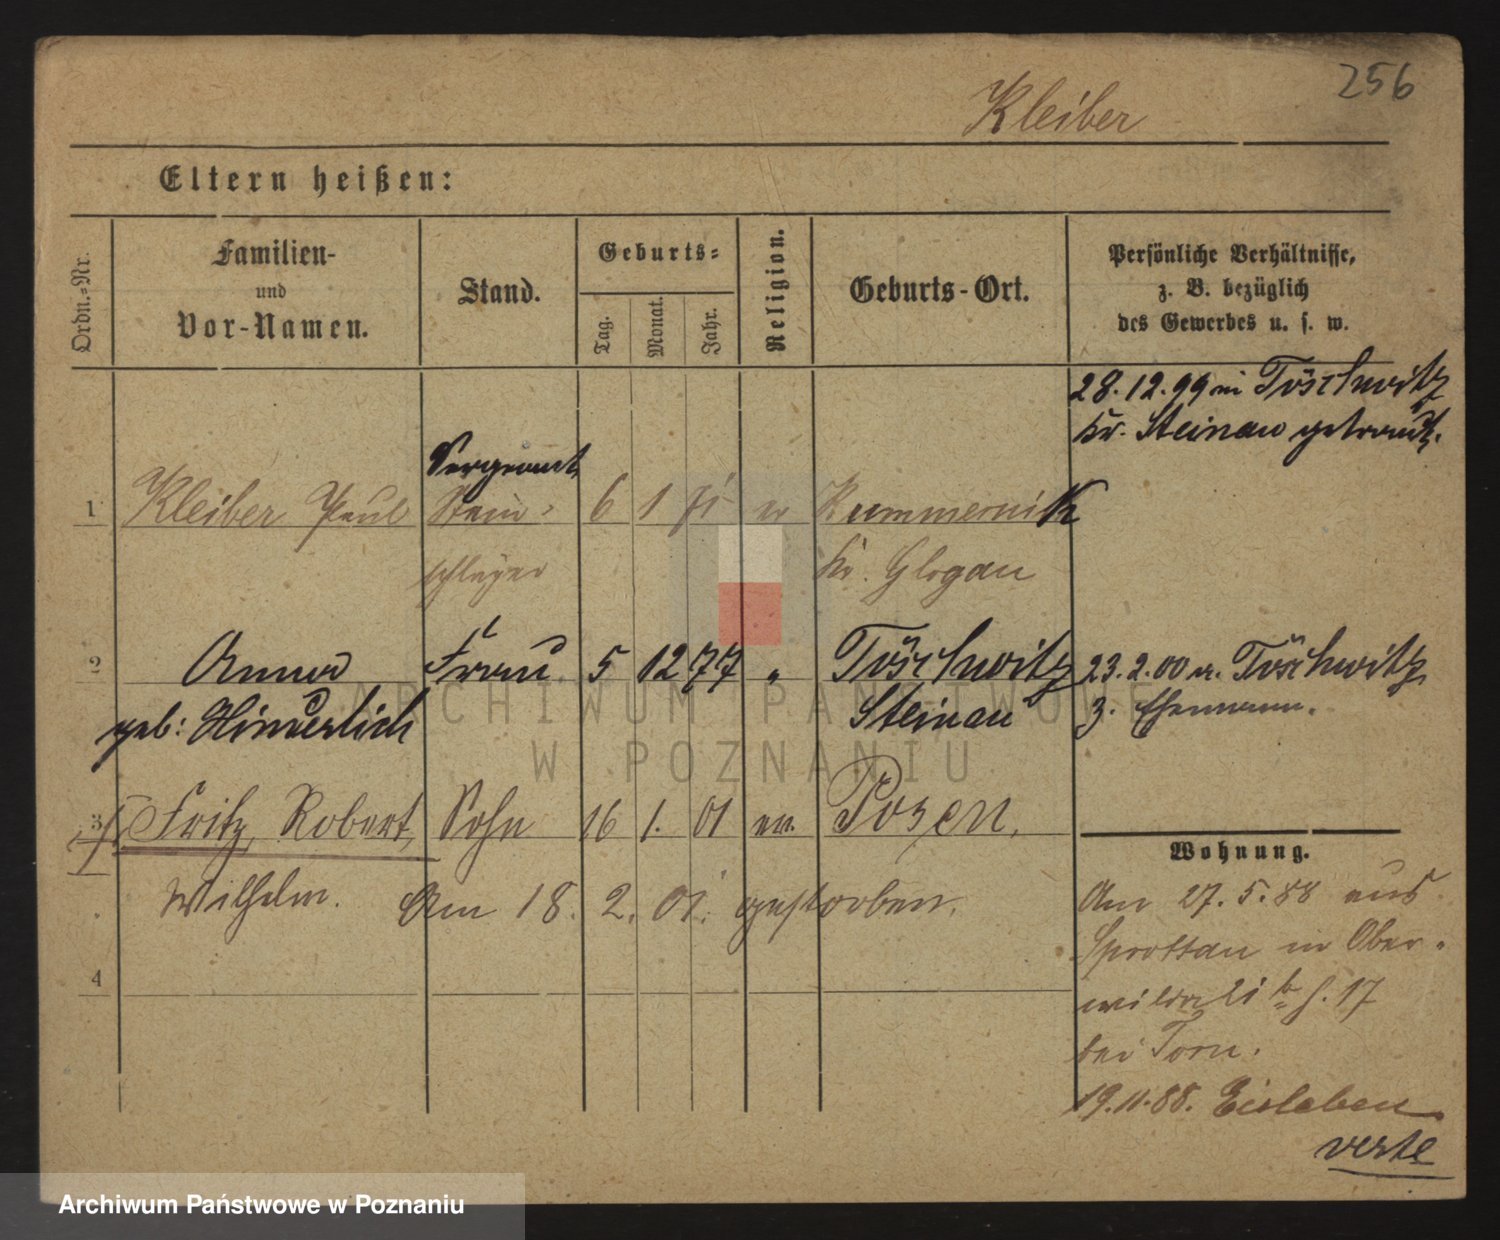 256
Kleiber
Eltern heißen:
Ordn.=Nr.
Familien-
und
Vor-Namen.
Stand.
Geburts=
Tag.
Monat.
Jahr.
Religion.
Geburts-Ort.
Persönliche Verhältnisse,
z. B. bezüglich
des Gewerbes u. s. w.
28.12.99 in Töschwitz
Kr. Steinau getraut.
Sergeant
1 Kleiber Paul Stein- 6 1 71 ev Kummernik
schläger Kr. Glogau
2 Anna Frau 5 12 77 " Töschwitz 23.2.00 v. Töschwitz
geb: Hinderlich Steinau z. Ehemann.
3 Fritz, Robert, Sohn 16 1. 01 ev. Posen.
Wilhelm. Am 18. 2. 01. gestorben.
4
Wohnung.
Am 27.5.88 aus
Sprottau in Ober-
wilda 21 b H. 17
bei Torn.
19.11.88. Eisleben
verte
ARCHIWUM PAŃSTWOWE
W POZNANIU
Archiwum Państwowe w Poznaniu